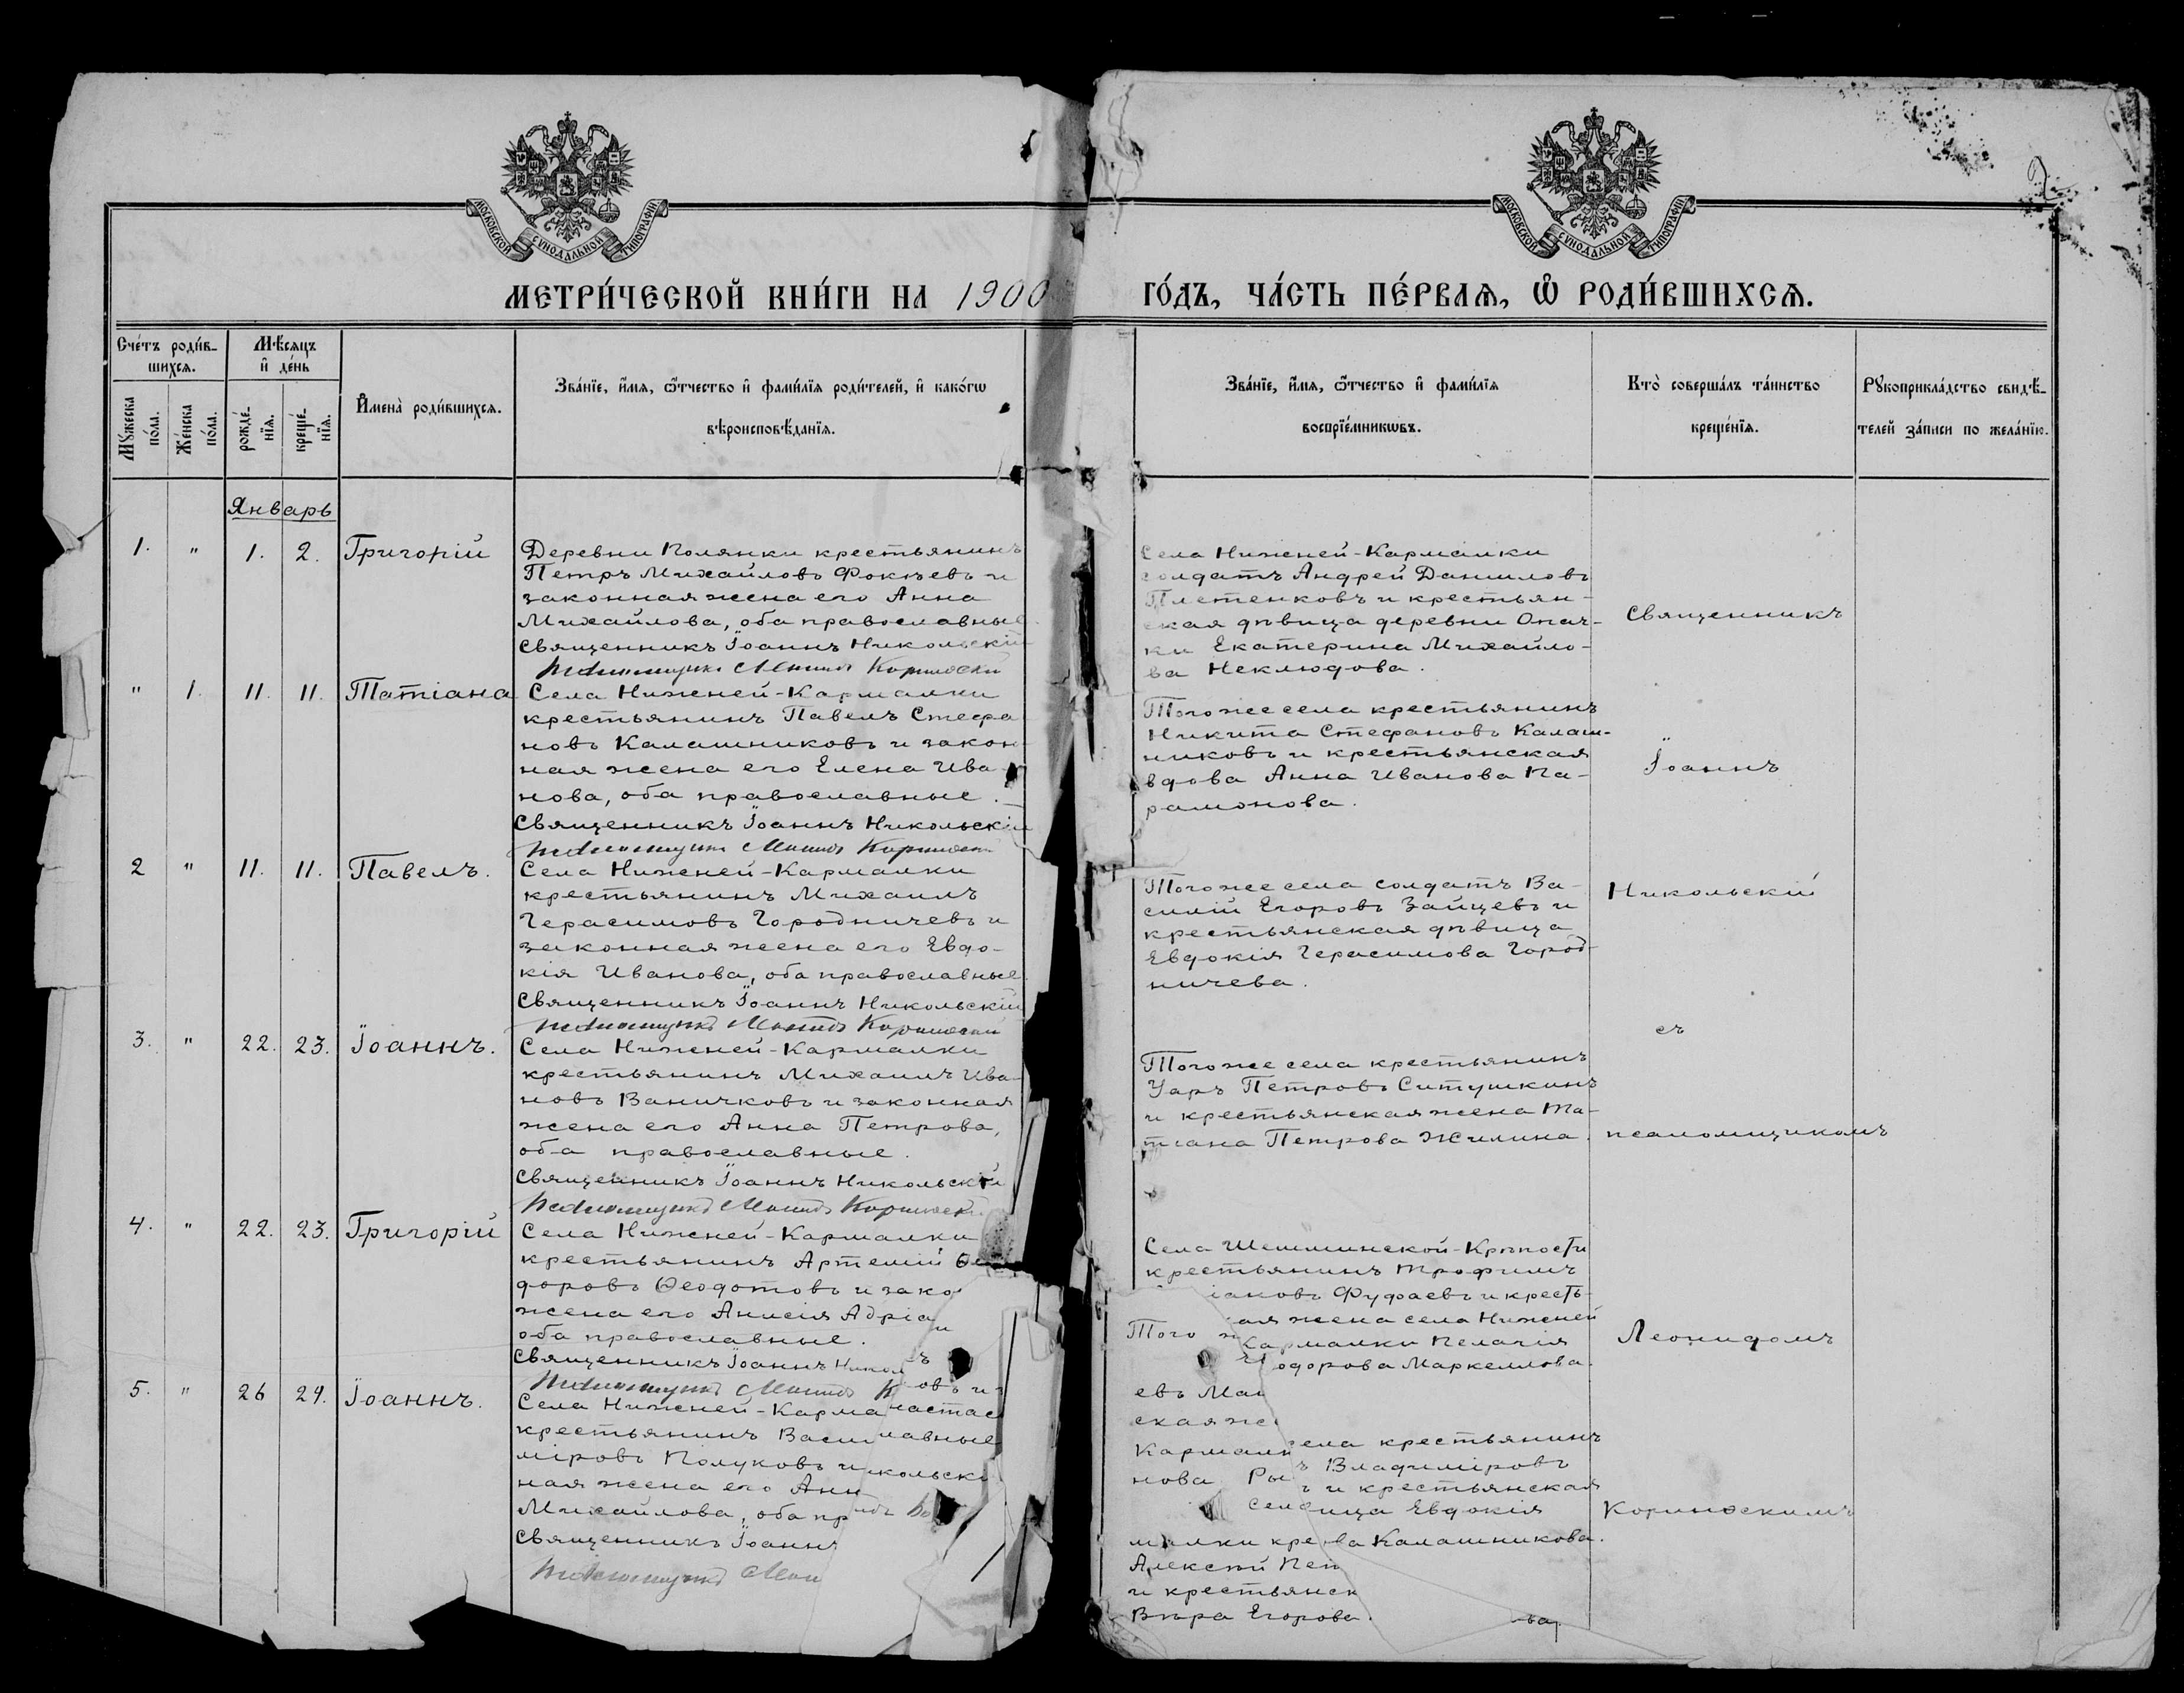 МОСКОВСКОЙ СУНОДАЛЬНОЙ ТИПОГРАФІИ
МОСКОВСКОЙ СУНОДАЛЬНОЙ ТИПОГРАФІИ
2
МЕТРИ́ЧЕСКОЙ КНИ́ГИ НА 1900
ГО́ДЪ, ЧА́СТЬ ПЕ́РВАѦ, Ѡ҆ РОДИ́ВШИХСѦ.
Сче́тъ роди́в-
шихсѧ.
Мѣ́сѧцъ
и҆ де́нь
Мꙋ́жеска
по́ла.
Же́нска
по́ла.
рожде́-
нїѧ.
креще́-
нїѧ.
И҆мена̀ роди́вшихсѧ.
Зва́нїе, и҆́мѧ, ѻ҆́тчество и҆ фами́лїѧ роди́телей, и҆ како́гѡ
вѣроисповѣ́данїѧ.
Зва́нїе, и҆́мѧ, ѻ҆́тчество и҆ фами́лїѧ
воспрїе́мникѡвъ.
Кто̀ соверша́лъ та́инство
креще́нїѧ.
Рꙋкоприкла́дство свидѣ́-
телей за́писи по жела́нїю.
Январь
1. " 1. 2. Григорій
Деревни Полянки крестьянинъ
Петръ Михайловъ Фокѣевъ и
законная жена его Анна
Михайлова, оба православные
Священникъ Іоаннъ Никольскій
Села Нижней-Кармалки
солдатъ Андрей Даниловъ
Плетенковъ и крестьян-
ская дѣвица деревни Опач-
ки Екатерина Михайло-
ва Неклюдова.
Священникъ
" 1. 11. 11. Татіана
Села Нижней-Кармалки
крестьянинъ Павелъ Стефа
новъ Калашниковъ и закон
ная жена его Елена Ива
нова, оба православные.
Священникъ Іоаннъ Никольскій
Того же села крестьянинъ
Никита Стефановъ Калаш-
никовъ и крестьянская
вдова Анна Иванова Па-
рамонова.
Іоаннъ
2 " 11. 11. Павелъ.
Села Нижней-Кармалки
крестьянинъ Михаилъ
Герасимовъ Городничевъ и
законная жена его Евдо-
кія Иванова, оба православные
Священникъ Іоаннъ Никольскій
Того же села солдатъ Ва-
силій Егоровъ Зайцевъ и
крестьянская дѣвица
Евдокія Герасимова Город-
ничева.
Никольскій
съ
3. " 22. 23. Іоаннъ.
Села Нижней-Кармалки
крестьянинъ Михаилъ Ива-
новъ Ваничковъ и законная
жена его Анна Петрова,
оба православные.
Священникъ Іоаннъ Никольскій
Того же села крестьянинъ
Уаръ Петровъ Ситушкинъ
и крестьянская жена Та-
тіана Петрова Жилина.
псаломщикомъ
4. " 22. 23. Григорій
Села Нижней-Кармалки
крестьянинъ Артемій Ѳе
доровъ Ѳеодотовъ и зако
жена его Анисія Адріан
оба православные.
Священникъ Іоаннъ Никол
Села Шешминской-Крѣпости
крестьянинъ Трофимъ
іановъ Фуфаевъ и кресть-
ая жена села Нижней
Кармалки Пелагія
одорова Маркеллова.
Леонидомъ
5. " 26 27. Іоаннъ.
Села Нижней-Карма
крестьянинъ Васи
міровъ Полуковъ и
ная жена его Анн
Михайлова, оба пр
Священникъ Іоаннъ
овъ и
настас
лавные
икольскі
Того
евъ
ская же
Кармалк
нова
ела крестьянинъ
ъ Владиміровъ
и крестьянская
ица Евдокія
ва Калашникова.
Коринѳскимъ
малки кре
Алексѣй Пет
и крестьянск
Вѣра Егорова.
ва